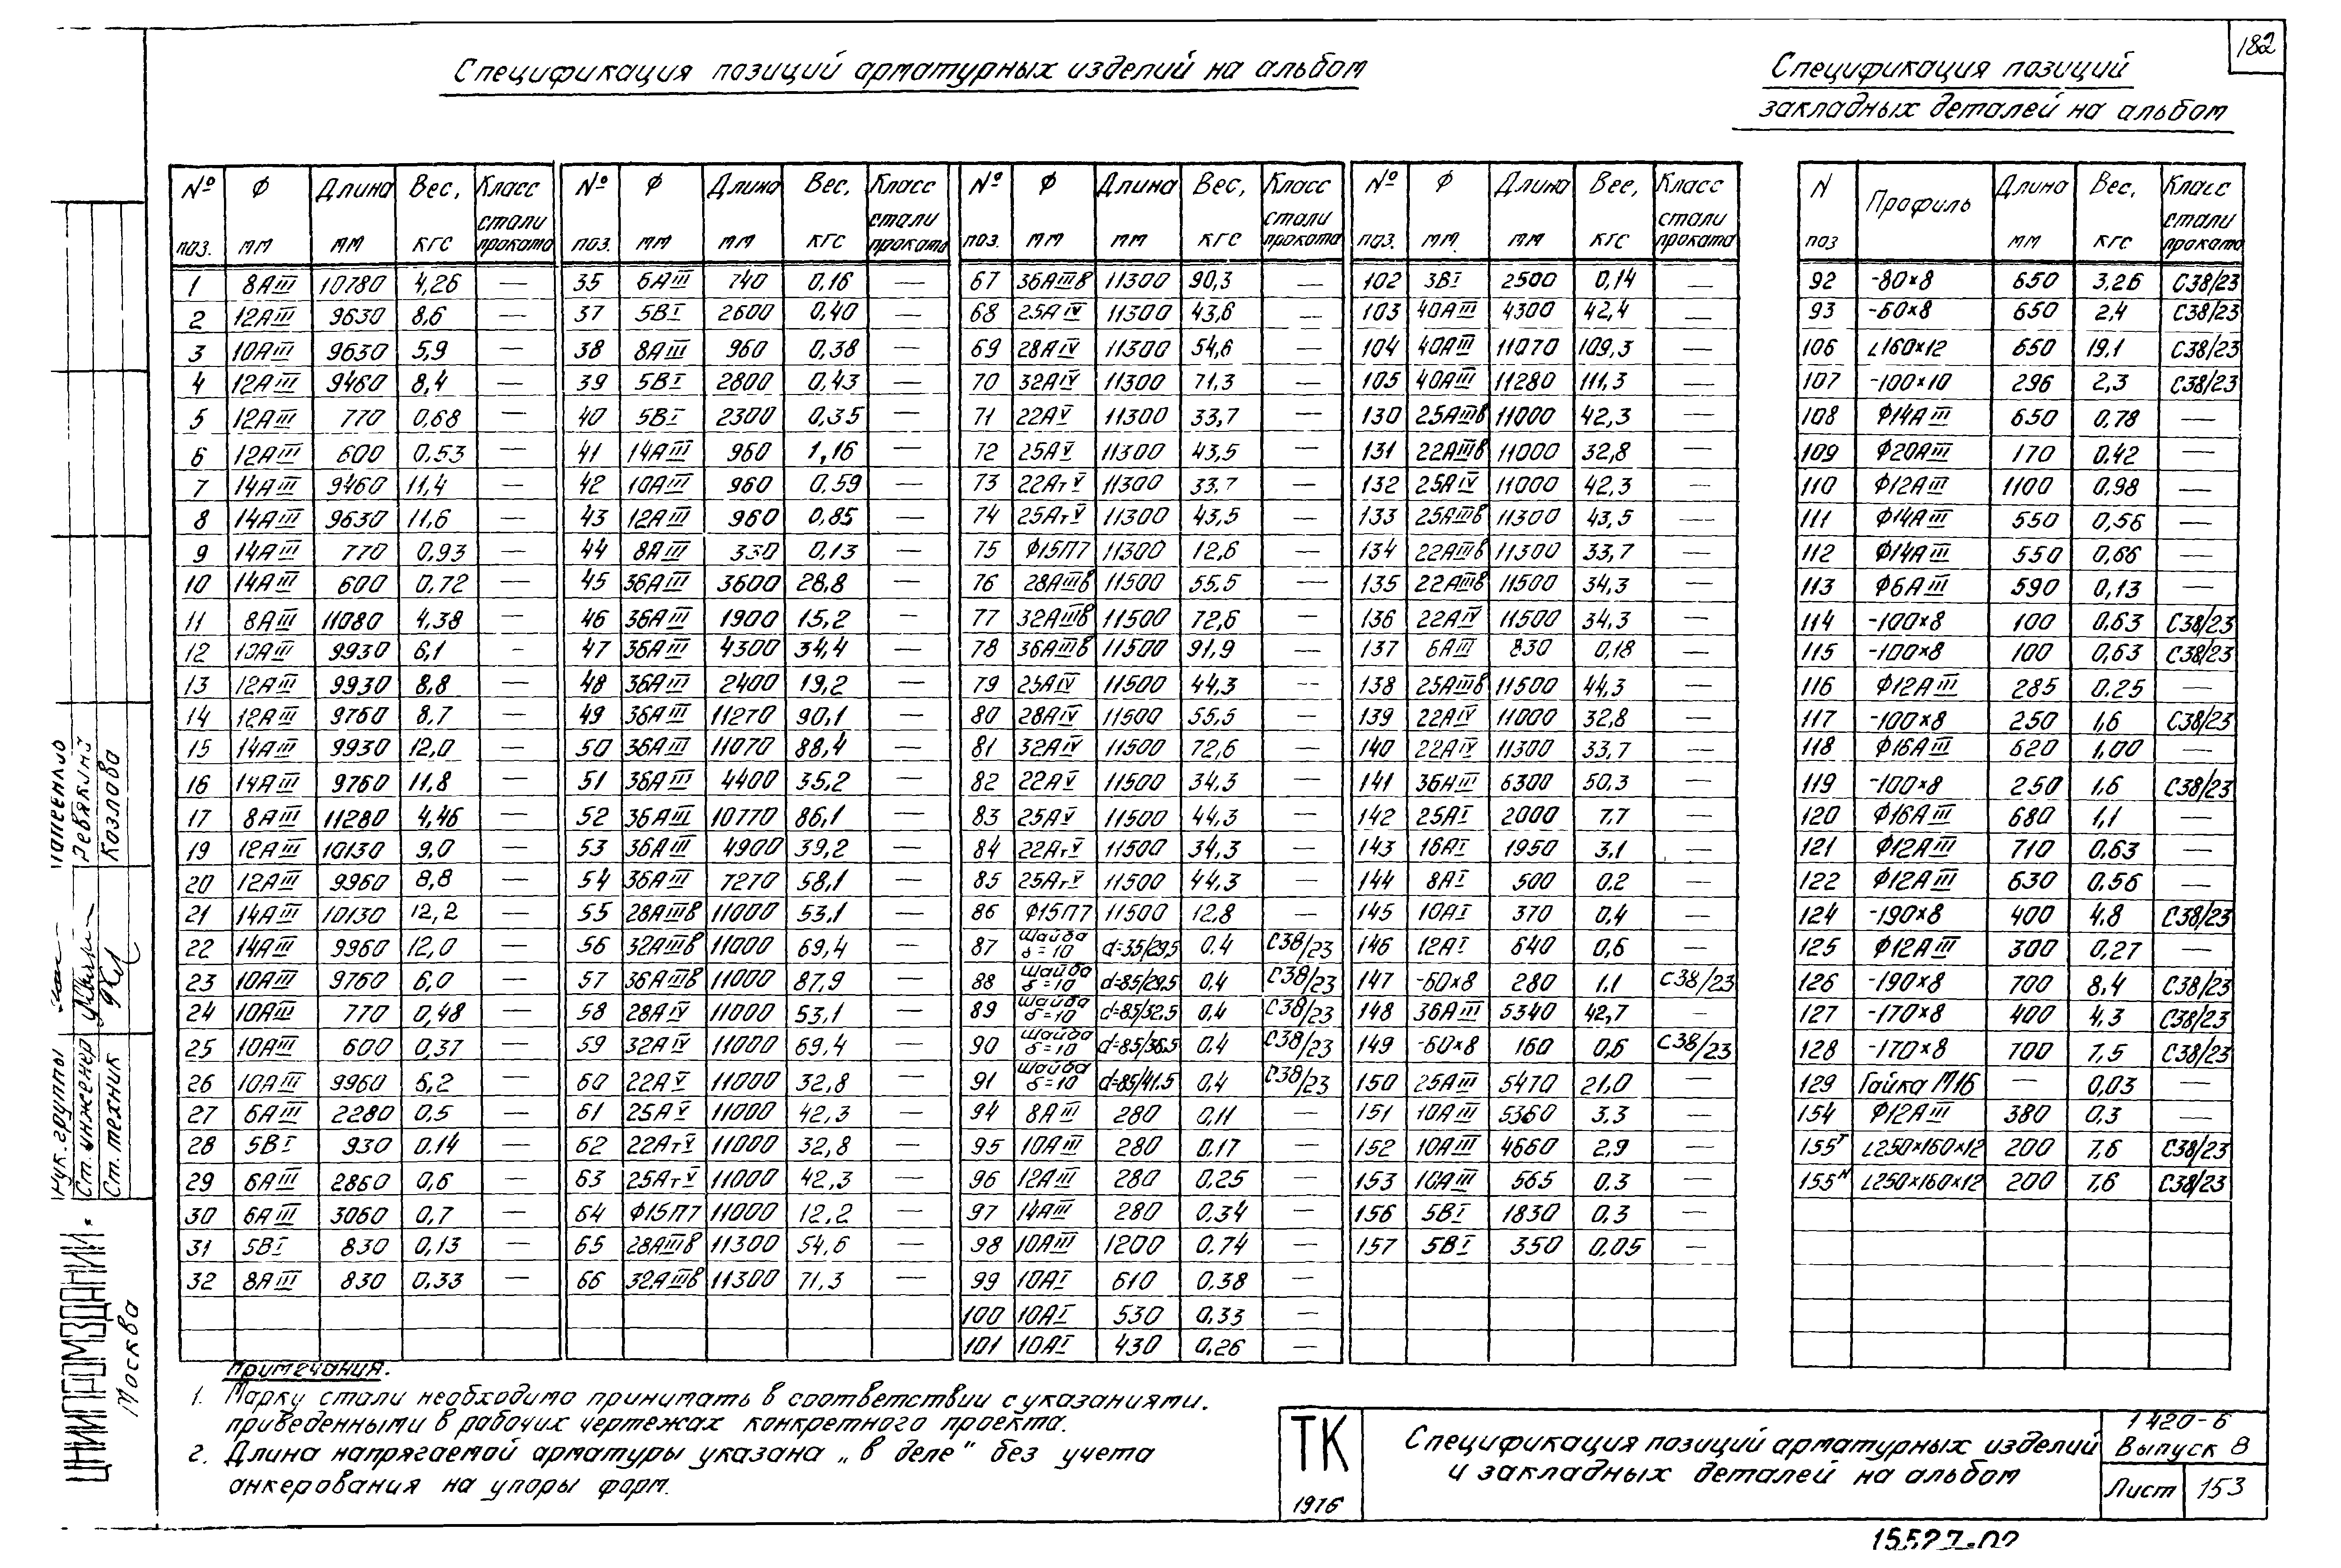 182
Спецификация позиций арматурных изделий на альбом
Спецификация позиций
закладных деталей на альбом
№ поз. Ф мм Длина мм Вес, кгс Класс стали проката
1 8АIII 10780 4,26 —
2 12АIII 9630 8,6 —
3 10АIII 9630 5,9 —
4 12АIII 9460 8,4 —
5 12АIII 770 0,68 —
6 12АIII 600 0,53 —
7 14АIII 9460 11,4 —
8 14АIII 9630 11,6 —
9 14АIII 770 0,93 —
10 14АIII 600 0,72 —
11 8АIII 11080 4,38 —
12 10АIII 9930 6,1 -
13 12АIII 9930 8,8 —
14 12АIII 9760 8,7 —
15 14АIII 9930 12,0 —
16 14АIII 9760 11,8 —
17 8АIII 11280 4,46 —
19 12АIII 10130 9,0 —
20 12АIII 9960 8,8 —
21 14АIII 10130 12,2 —
22 14АIII 9960 12,0 —
23 10АIII 9760 6,0 —
24 10АIII 770 0,48 —
25 10АIII 600 0,37 —
26 10АIII 9960 6,2 —
27 6АIII 2280 0,5 —
28 5ВI 930 0.14 —
29 6АIII 2860 0,6 —
30 6АIII 3060 0,7 —
31 5ВI 830 0,13 —
32 8АIII 830 0,33 —
№ поз. Ф мм Длина мм Вес, кгс Класс стали проката
35 6АIII 740 0,16 —
37 5ВI 2600 0,40 —
38 8АIII 960 0,38 —
39 5ВI 2800 0,43 —
40 5ВI 2300 0,35 —
41 14АIII 960 1,16 —
42 10АIII 960 0.59 —
43 12АIII 960 0,85 —
44 8АIII 330 0,13 —
45 36АIII 3600 28,8 —
46 36АIII 1900 15,2 —
47 36АIII 4300 34,4 —
48 36АIII 2400 19,2 —
49 36АIII 11270 90,1 —
50 36АIII 11070 88,4 —
51 36АIII 4400 35,2 —
52 36АIII 10770 86,1 —
53 36АIII 4900 39,2 —
54 36АIII 7270 58,1 —
55 28АIIIв 11000 53,1 —
56 32АIIIв 11000 69,4 —
57 36АIIIв 11000 87,9 —
58 28АIV 11000 53,1 —
59 32АIV 11000 69,4 —
60 22АV 11000 32,8 —
61 25АV 11000 42,3 —
62 22АтV 11000 32,8 —
63 25АтV 11000 42,3 —
64 Ф15П7 11000 12,2 —
65 28АIIIв 11300 54,6 —
66 32АIIIв 11300 71,3 —
№ поз. Ф мм Длина мм Вес, кгс Класс стали проката
67 36АIIIв 11300 90,3 —
68 25АIV 11300 43,6 —
69 28АIV 11300 54,6 —
70 32АIV 11300 71,3 —
71 22АV 11300 33,7 —
72 25АV 11300 43,5 —
73 22АтV 11300 33.7 —
74 25АтV 11300 43,5 —
75 Ф15П7 11300 12,6 —
76 28АIIIв 11500 55.5 —
77 32АIIIв 11500 72,6 —
78 36АIIIв 11500 91,9 —
79 25АIV 11500 44,3 —
80 28АIV 11500 55,5 —
81 32АIV 11500 72,6 —
82 22АV 11500 34,3 —
83 25АV 11500 44,3 —
84 22АтV 11500 34,3 —
85 25АтV 11500 44,3 —
86 Ф15П7 11500 12,8 —
87 Шайба δ=10 d=35/29,5 0.4 С38/23
88 Шайба δ=10 d=85/29,5 0,4 С38/23
89 Шайба δ=10 d=85/32,5 0,4 С38/23
90 Шайба δ=10 d=85/36.5 0.4 С38/23
91 Шайба δ=10 d=85/41.5 0,4 С38/23
94 8АIII 280 0,11 —
95 10АIII 280 0.17 —
96 12АIII 280 0,25 —
97 14АIII 280 0.34 —
98 10АIII 1200 0.74 —
99 10АI 610 0.38 —
100 10АI 530 0,33 —
101 10АI 430 0,26 —
№ поз. Ф мм. Длина мм Вес, кгс Класс стали проката
102 3ВI 2500 0,14 —
103 40АIII 4300 42,4 —
104 40АIII 11070 109,3 —
105 40АIII 11280 111,3 —
130 25АIIIв 11000 42,3 —
131 22АIIIв 11000 32,8 —
132 25АIV 11000 42,3 —
133 25АIIIв 11300 43,5 —
134 22АIIIв 11300 33,7 —
135 22АIIIв 11500 34,3 —
136 22АIV 11500 34,3 —
137 6АIII 830 0,18 —
138 25АIIIв 11500 44,3 —
139 22АIV 11000 32,8 —
140 22АIV 11300 33,7 —
141 36АIII 6300 50,3 —
142 25АI 2000 7.7 —
143 16АI 1950 3,1 —
144 8АI 500 0.2 —
145 10АI 370 0,4 —
146 12АI 640 0,6 —
147 -60×8 280 1.1 С38/23
148 36АIII 5340 42,7 —
149 -60×8 160 0,6 С38/23
150 25АIII 5470 21.0 —
151 10АIII 5360 3.3 —
152 10АIII 4660 2,9 —
153 10АIII 565 0.3 —
156 5ВI 1830 0,3 —
157 5ВI 350 0,05 —
N поз Профиль Длина мм Вес, кгс Класс стали проката
92 -80×8 650 3,26 С38/23
93 -60×8 650 2,4 С38/23
106 L160×12 650 19,1 С38/23
107 -100×10 296 2,3 С38/23
108 Ф14АIII 650 0,78 —
109 Ф20АIII 170 0.42 —
110 Ф12АIII 1100 0,98 —
111 Ф14АIII 550 0,56 —
112 Ф14АIII 550 0,66 —
113 Ф6АIII 590 0,13 —
114 -100×8 100 0.63 С38/23
115 -100×8 100 0,63 С38/23
116 Ф12АIII 285 0.25 —
117 -100×8 250 1,6 С38/23
118 Ф16АIII 620 1,00 —
119 -100×8 250 1,6 С38/23
120 Ф16АIII 680 1,1 —
121 Ф12АIII 710 0,63 —
122 Ф12АIII 630 0.56 —
124 -190×8 400 4,8 С38/23
125 Ф12АIII 300 0,27 —
126 -190×8 700 8,4 С38/23
127 -170×8 400 4,3 С38/23
128 -170×8 700 7,5 С38/23
129 Гайка М16 — 0,03 —
154 Ф12АIII 380 0,3 —
155т L250×160×12 200 7,6 С38/23
155н L250×160×12 200 7,6 С38/23
Примечания.
1. Марку стали необходимо принимать в соответствии с указаниями.
приведенными в рабочих чертежах конкретного проекта.
2. Длина напрягаемой арматуры указана „в деле" без учета
анкерования на упоры форм.
ТК
1976
Спецификация позиций арматурных изделий
и закладных деталей на альбом
1420-6
Выпуск 8
Лист 153
15527-02
ЦНИИПРОМЗДАНИЙ.
Москва
Рук. группы
Ст. инженер Ревякина
Ст. техник Козлова